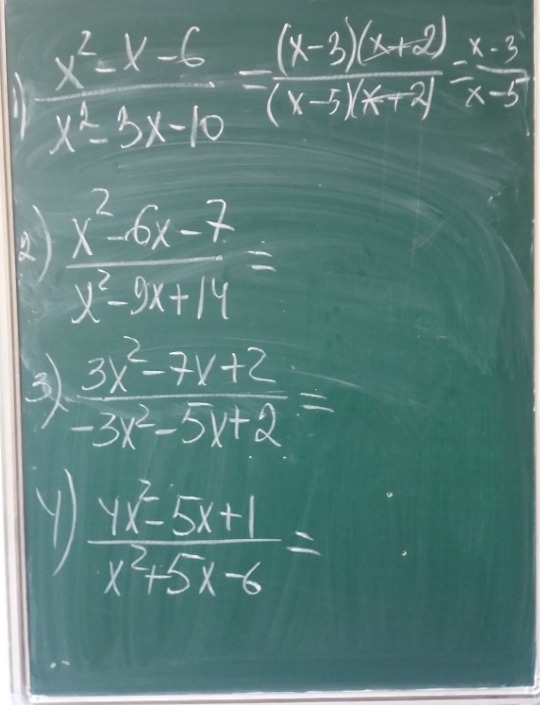 1) (x² - x - 6)/(x² - 3x - 10) = ((x - 3)(x + 2))/((x - 5)(x + 2)) = (x - 3)/(x - 5)
2) (x² - 6x - 7)/(x² - 9x + 14) =
3) (3x² - 7x + 2)/(-3x² - 5x + 2) =
4) (4x² - 5x + 1)/(x² + 5x - 6) =